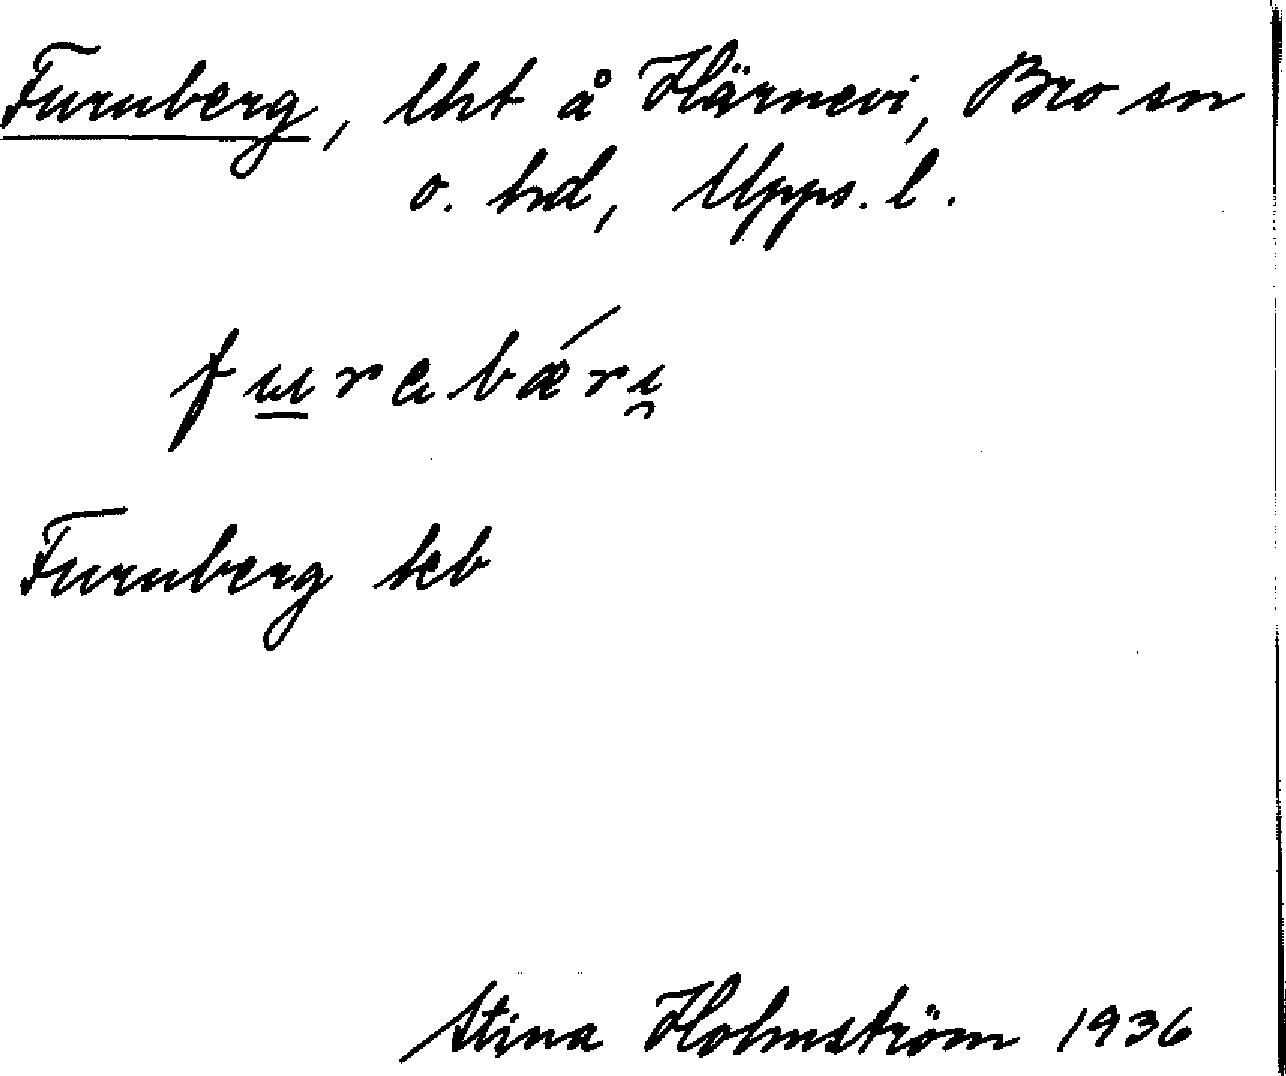 Furuberg, lht å Härnevi, Bro sn
o. hd, Upps. l.
Furuberg hcb
Stina Holmström 1936